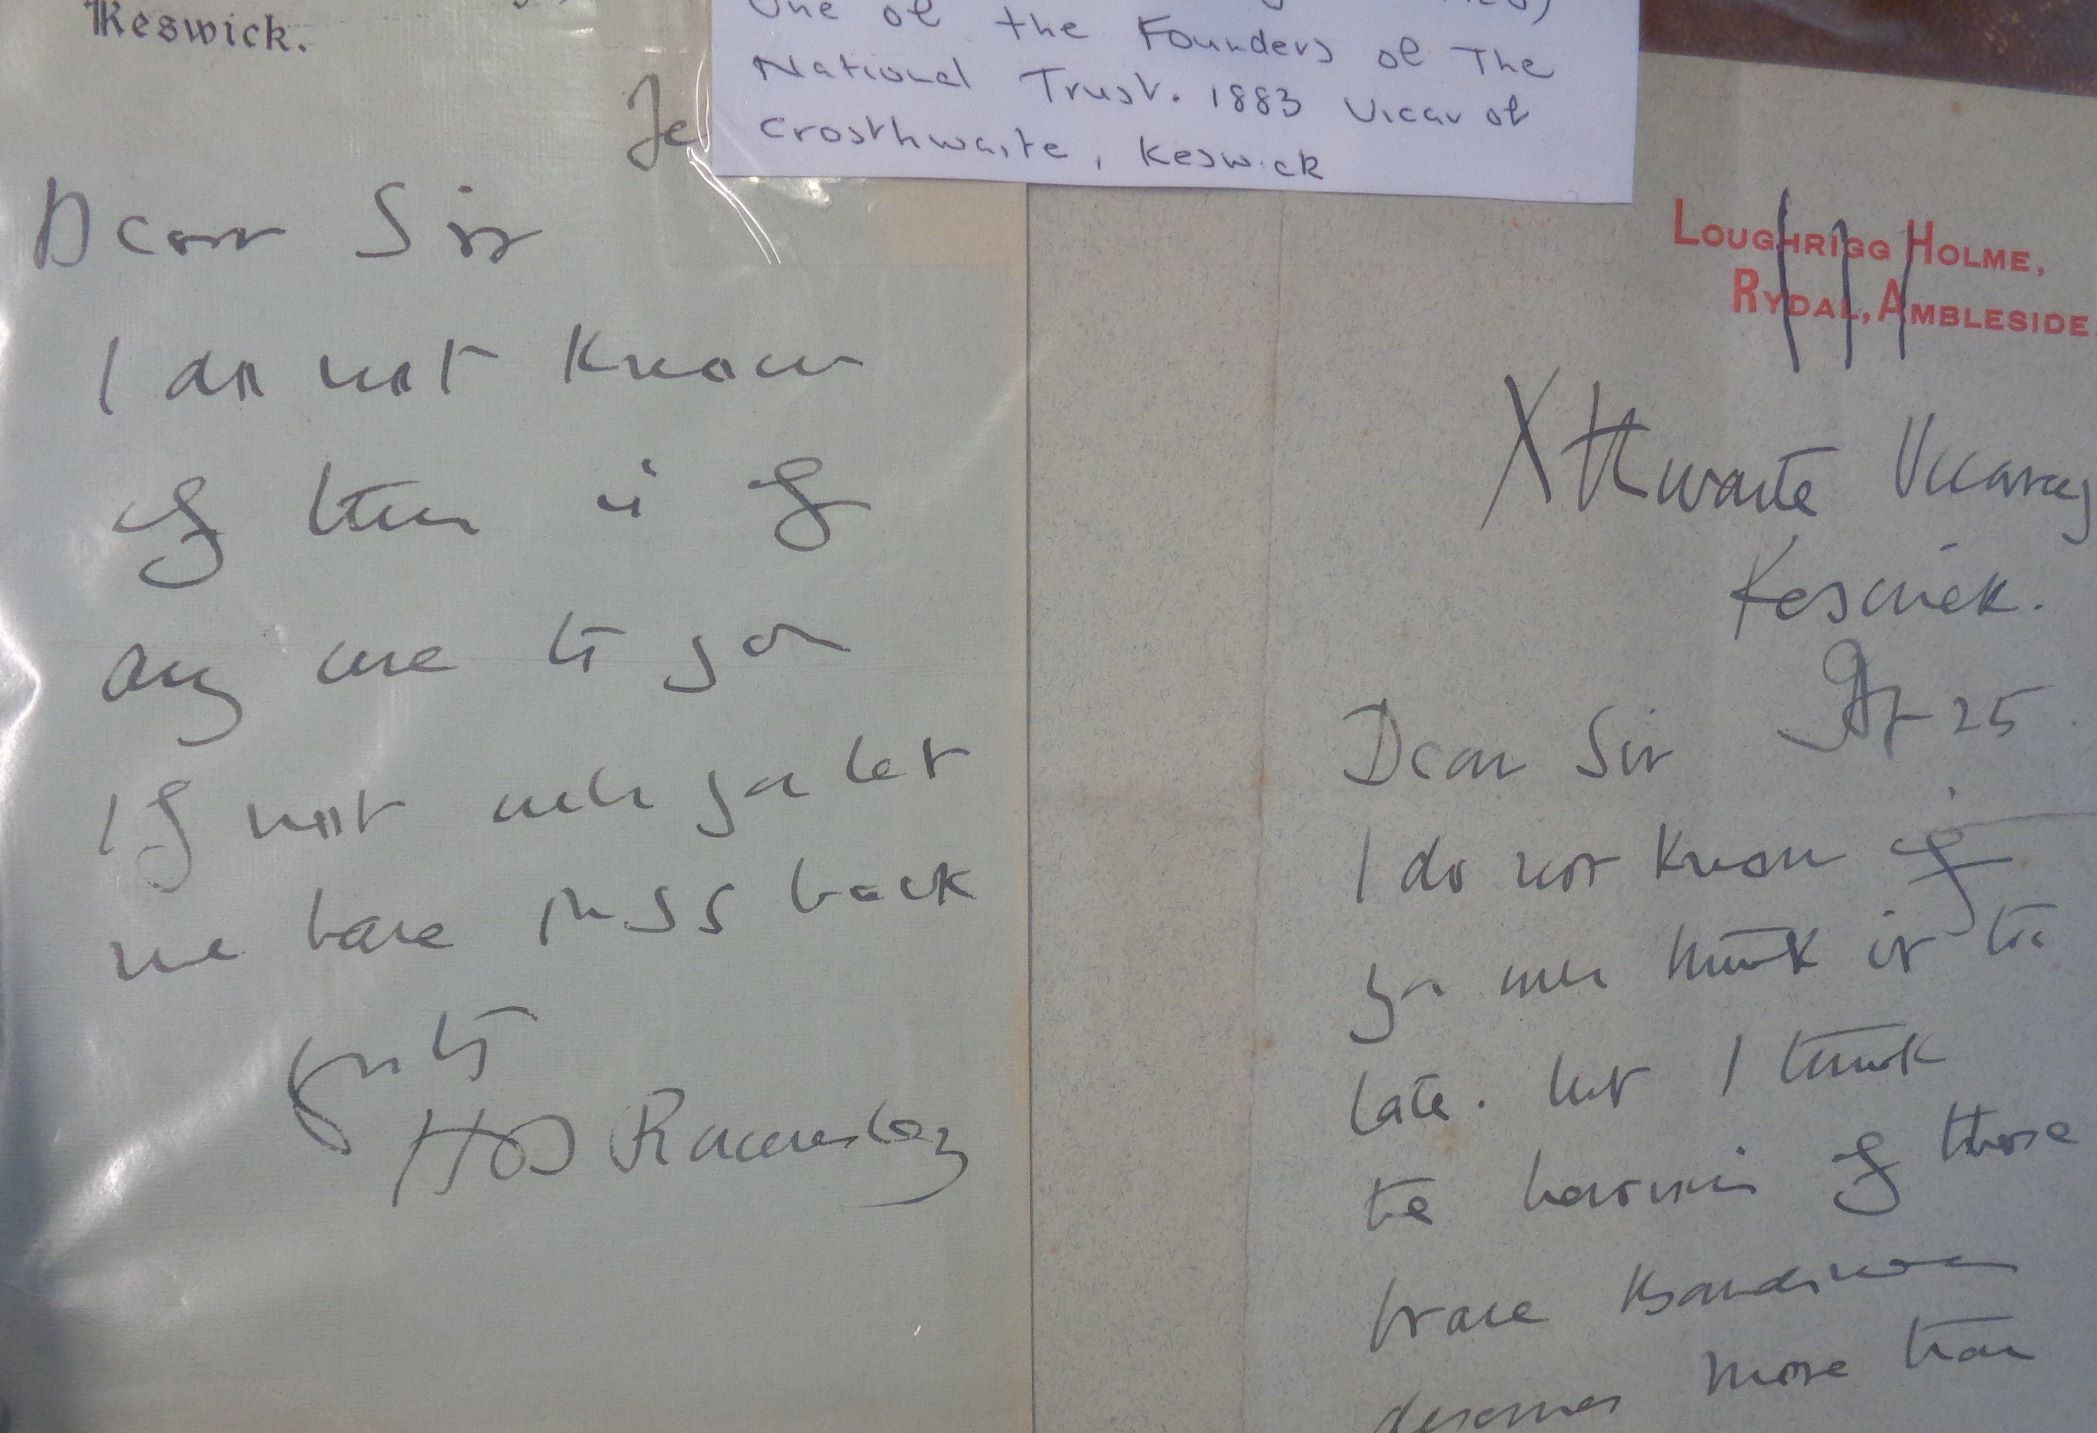 Keswick.
One of the Founders of The
National Trust. 1883 Vicar of
Crosthwaite, Keswick
Dear Sir
I do not know
if this is of
any use to you
If not will you let
me have MSS back
Yrs tly
H D Rawnsley
LOUGHRIGG HOLME,
RYDAL, AMBLESIDE
Xthwaite Vicarag
Keswick.
Ap 25
Dear Sir
I do not know if
you will think it too
late. but I think
the heroism of those
brave Bandsmen
deserves more than